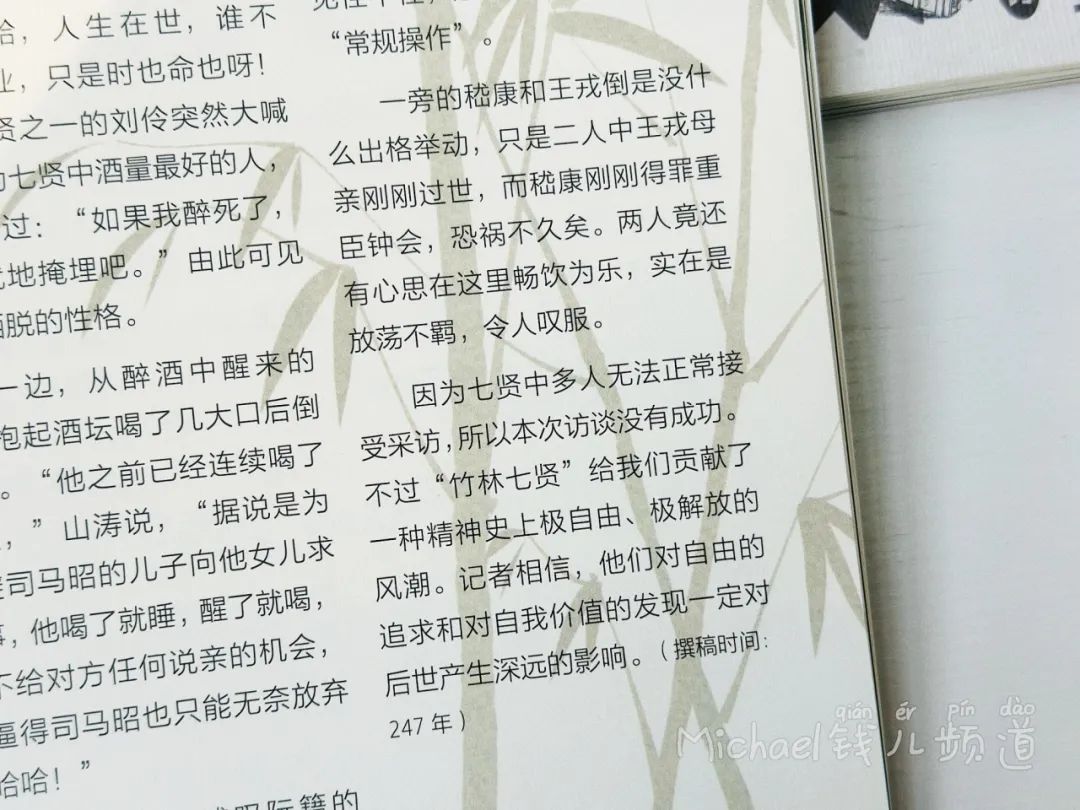 哈，人生在世，谁不
业，只是时也命也呀！
贤之一的刘伶突然大喊
七贤中酒量最好的人，
过：“如果我醉死了，
地掩埋吧。”由此可见
洒脱的性格。
一边，从醉酒中醒来的
抱起酒坛喝了几大口后倒
。“他之前已经连续喝了
，”山涛说，“据说是为
司马昭的儿子向他女儿求
事，他喝了就睡，醒了就喝，
不给对方任何说亲的机会，
逼得司马昭也只能无奈放弃
哈哈！”
阮籍的
“常规操作”。
一旁的嵇康和王戎倒是没什
么出格举动，只是二人中王戎母
亲刚刚过世，而嵇康刚刚得罪重
臣钟会，恐祸不久矣。两人竟还
有心思在这里畅饮为乐，实在是
放荡不羁，令人叹服。
因为七贤中多人无法正常接
受采访，所以本次访谈没有成功。
不过“竹林七贤”给我们贡献了
一种精神史上极自由、极解放的
风潮。记者相信，他们对自由的
追求和对自我价值的发现一定对
后世产生深远的影响。（撰稿时间：
247 年）
qián ér pín dào
Michael钱儿频道